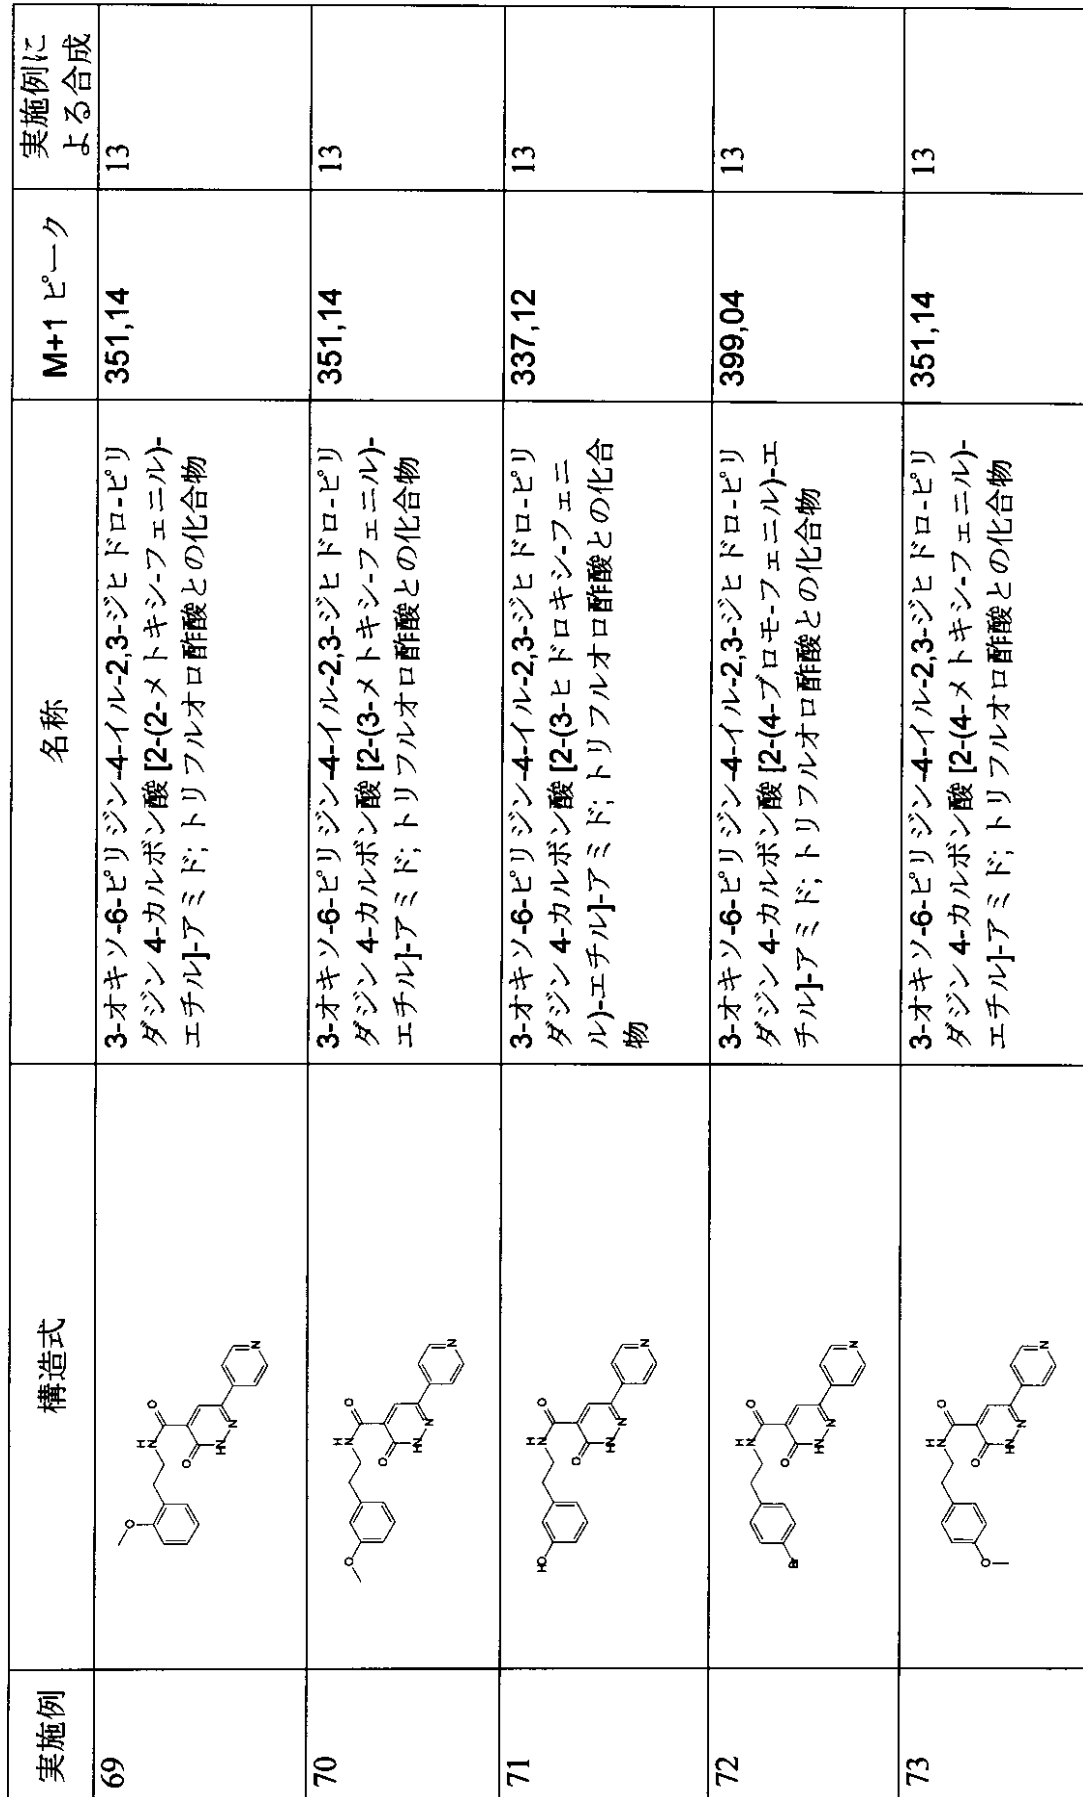 実施例
構造式
名称
M+1 ピーク
実施例に
よる合成
69
3-オキソ-6-ピリジン-4-イル-2,3-ジヒドロ-ピリ
ダジン 4-カルボン酸 [2-(2-メトキシ-フェニル)-
エチル]-アミド; トリフルオロ酢酸との化合物
351,14
13
70
3-オキソ-6-ピリジン-4-イル-2,3-ジヒドロ-ピリ
ダジン 4-カルボン酸 [2-(3-メトキシ-フェニル)-
エチル]-アミド; トリフルオロ酢酸との化合物
351,14
13
71
3-オキソ-6-ピリジン-4-イル-2,3-ジヒドロ-ピリ
ダジン 4-カルボン酸 [2-(3-ヒドロキシ-フェニ
ル)-エチル]-アミド; トリフルオロ酢酸との化合
物
337,12
13
72
3-オキソ-6-ピリジン-4-イル-2,3-ジヒドロ-ピリ
ダジン 4-カルボン酸 [2-(4-ブロモ-フェニル)-エ
チル]-アミド; トリフルオロ酢酸との化合物
399,04
13
73
3-オキソ-6-ピリジン-4-イル-2,3-ジヒドロ-ピリ
ダジン 4-カルボン酸 [2-(4-メトキシ-フェニル)-
エチル]-アミド; トリフルオロ酢酸との化合物
351,14
13